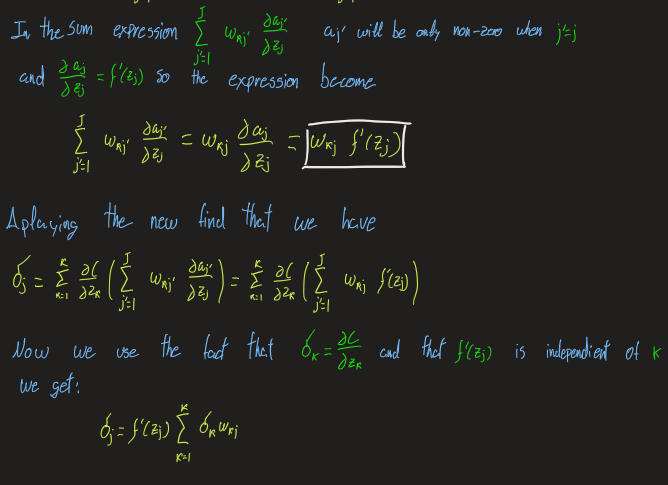 In the sum expression Σ_{j'=1}^{J} w_{kj'} ∂a_{j'}/∂z_j a_{j'} will be only non-zero when j'=j
and ∂a_j/∂z_j = f'(z_j) so the expression become
Σ_{j'=1}^{J} w_{kj'} ∂a_{j'}/∂z_j = w_{kj} ∂a_j/∂z_j = w_{kj} f'(z_j)
Aplaying the new find that we have
δ_j = Σ_{k=1}^{K} ∂C/∂z_k (Σ_{j'=1}^{J} w_{kj'} ∂a_{j'}/∂z_j) = Σ_{k=1}^{K} ∂C/∂z_k (Σ_{j'=1}^{J} w_{kj} f'(z_j))
Now we use the fact that δ_k = ∂C/∂z_k and that f'(z_j) is independient of k
we get:
δ_j = f'(z_j) Σ_{k=1}^{K} δ_k w_{kj}